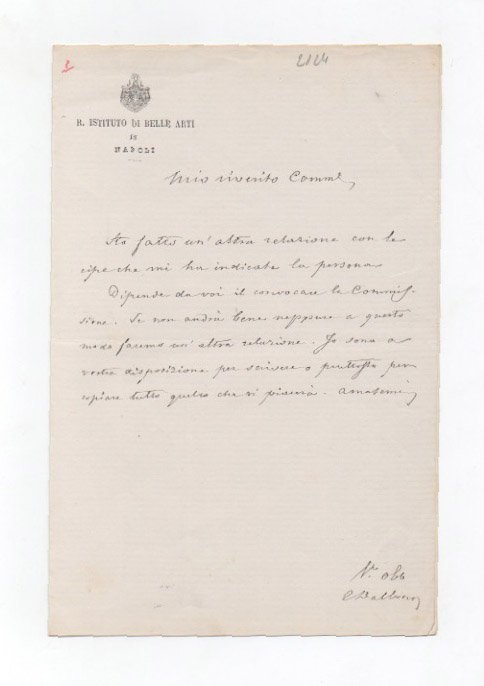 2124
R. ISTITUTO DI BELLE ARTI
IN
NAPOLI
Mio riverito Comm.e,
Ho fatto un' altra relazione con le
cifre che mi ha indicate la persona
Dipende da voi il convocare la Commis-
sione. Se non andrà bene neppure a questo
modo faremo un' altra relazione. Io sono a
vostra disposizione per scrivere o piuttosto per
copiare tutto quello che vi piacerà. Amatemi,
V.ro obb